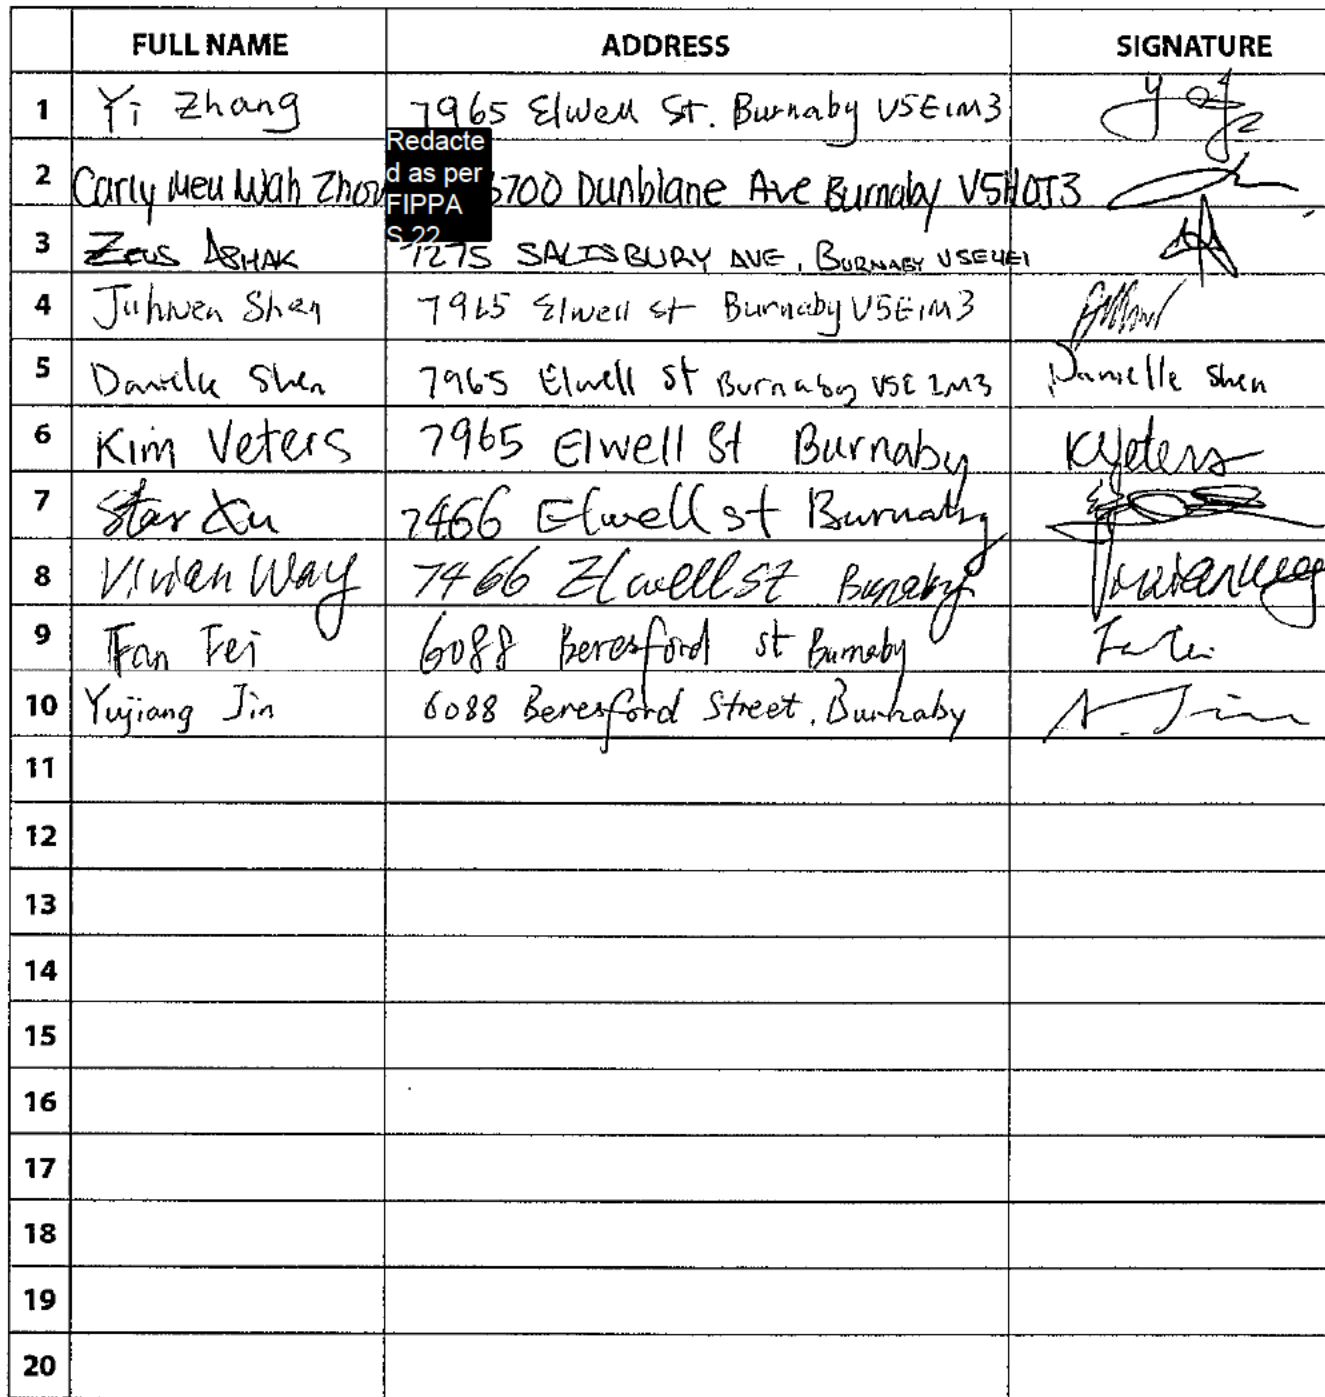 FULL NAME ADDRESS SIGNATURE
1 Yi Zhang 7965 Elwell St. Burnaby V5E1M3
Redacte
d as per
FIPPA
S.22
2 Carly Meu Wah Zhou 6700 Dunblane Ave Burnaby V5H0J3
3 Zeus ASHAK 7275 SALISBURY AVE, BURNABY V5E4E1
4 Juhwen Shen 7965 Elwell st Burnaby V5E1M3
5 Danielle Shen 7965 Elwell St Burnaby V5E 1M3 Danielle Shen
6 Kim Veters 7965 Elwell St Burnaby KVeters
7 Star Xu 7466 Elwell st Burnaby
8 Vivian Way 7466 Elwell st Burnaby
9 Fan Fei 6088 Beresford st Burnaby
10 Yujiang Jin 6088 Beresford Street, Burnaby
11
12
13
14
15
16
17
18
19
20